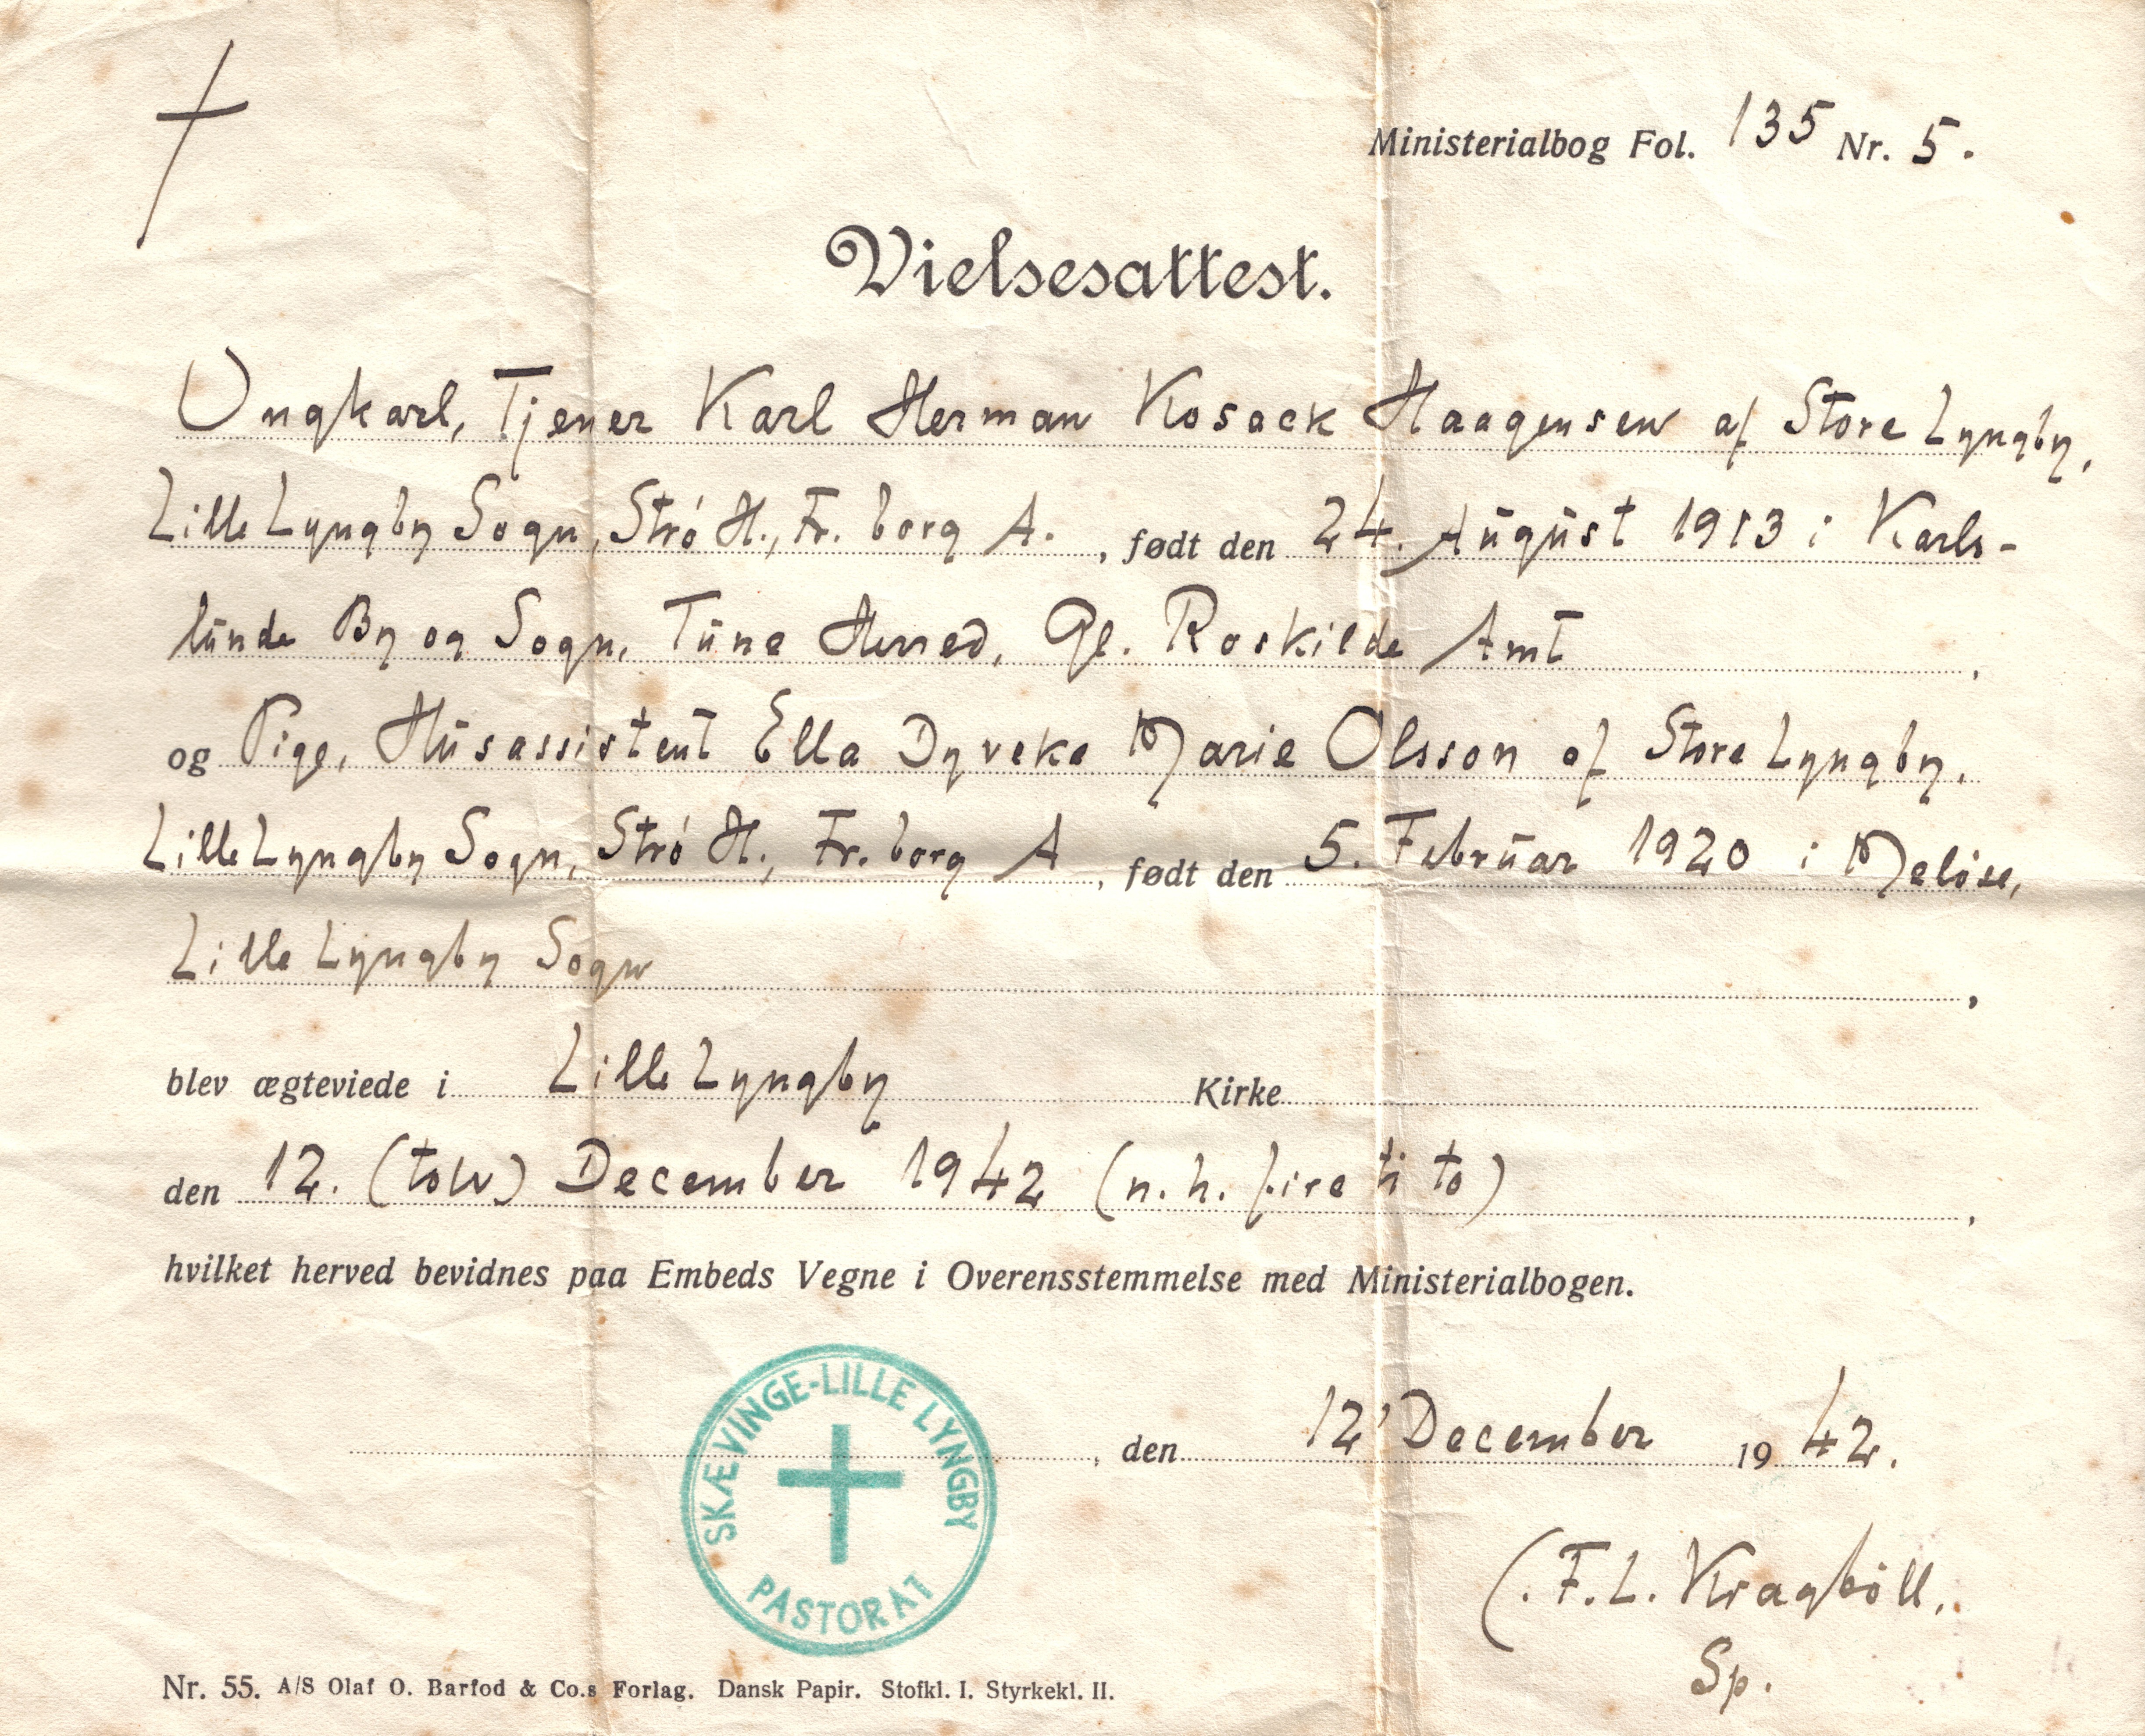 Ministerialbog Fol. 135 Nr. 5.
Vielsesattest.
Ungkarl, Tjener Karl Herman Kosack Haagensen af Store Lyngby,
Lille Lyngby Sogn, Stró H., Fr. borg A. , født den 24. August 1913 i Karls-
lunde By og Sogn, Tune Herred, Gl. Roskilde Amt ,
og Pige, Husassistent Ella Dyveke Marie Olsson af Store Lyngby,
Lille Lyngby Sogn, Stró H., Fr. borg A , født den 5. Februar 1920 i Meløse,
Lille Lyngby Sogn ,
blev ægteviede i Lille Lyngby Kirke
den 12. (tolv) December 1942 (n. h. fire ti to) ,
hvilket herved bevidnes paa Embeds Vegne i Overensstemmelse med Ministerialbogen.
SKÆVINGE-LILLE LYNGBY
PASTORAT
, den 12' December 1942.
(. F. L. Kragböll,
Sp.
Nr. 55. A/S Olaf O. Barfod & Co.s Forlag. Dansk Papir. Stofkl. I. Styrkekl. II.